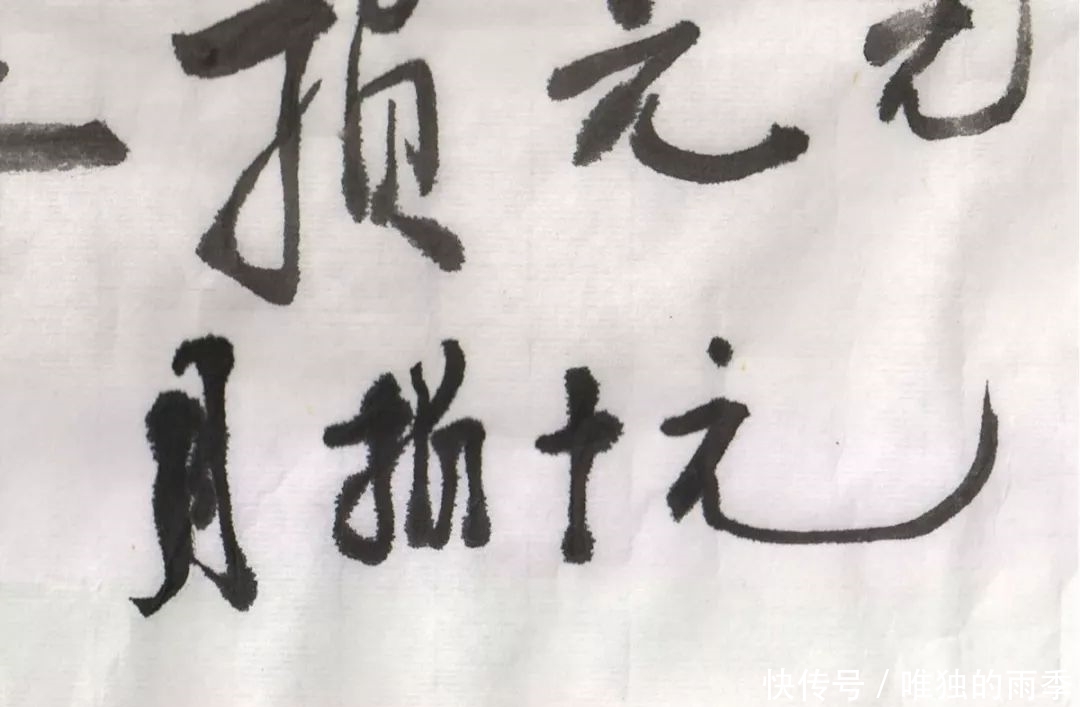 损元元
月捐十元
快传号 / 唯独的雨季